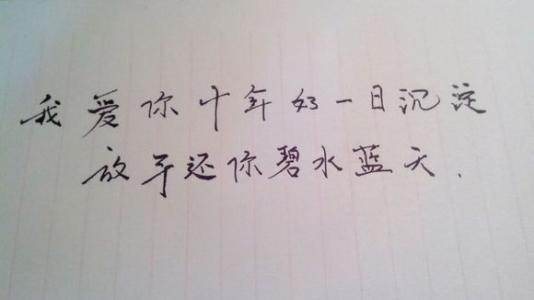 我爱你十年如一日沉淀
放手还你碧水蓝天.